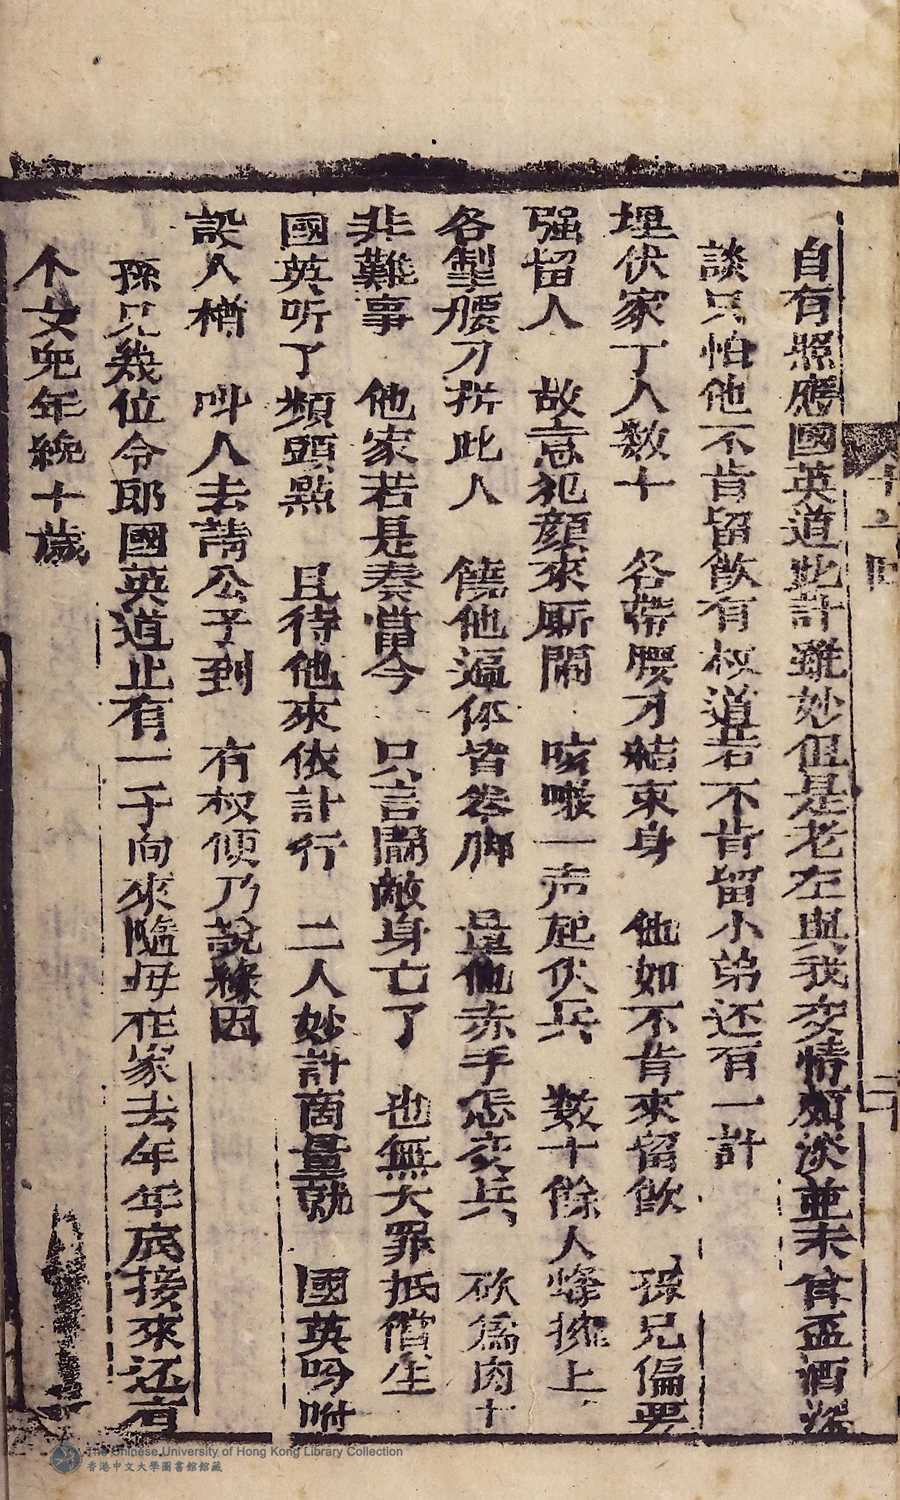 自有照應國英道此計雖妙但是老左與我交情頗淡並未食盃酒深
談只怕他不肯留飲有权道若不肯留小弟还有一計
埋伏家丁人数十　各帶腰刀結束身　他如不肯來留飲　孫兄偏要
强留人　故意犯顔來厮鬧　咳嗽一声起伏兵　数十餘人蜂擁上
各掣腰刀拚此人　饒他逼体皆卷脚　量他赤手怎交兵　砍為肉十
非難事　他家若是奏當今　只言鬪敵身亡了　也無大罪抵償生
國英听了頻頭點　且待他來依計行　二人妙計商量就　國英吩咐
設人樽　叫人去請公子到　有权便乃說緣因
孫兄幾位令郎國英道止有一子向來隨母在家去年年底接來还有
个女兒年纔十歲
十二回
The Chinese University of Hong Kong Library Collection
香港中文大學圖書館館藏